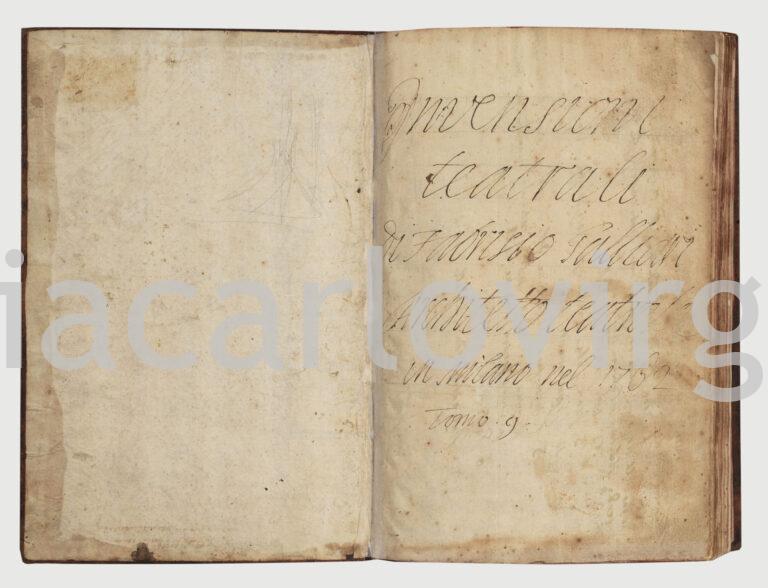 Invensioni
teatrali
di Fabrisio Galliari
Architetto
in Milano nel 1762
Tomo 9.
iacarlovirg